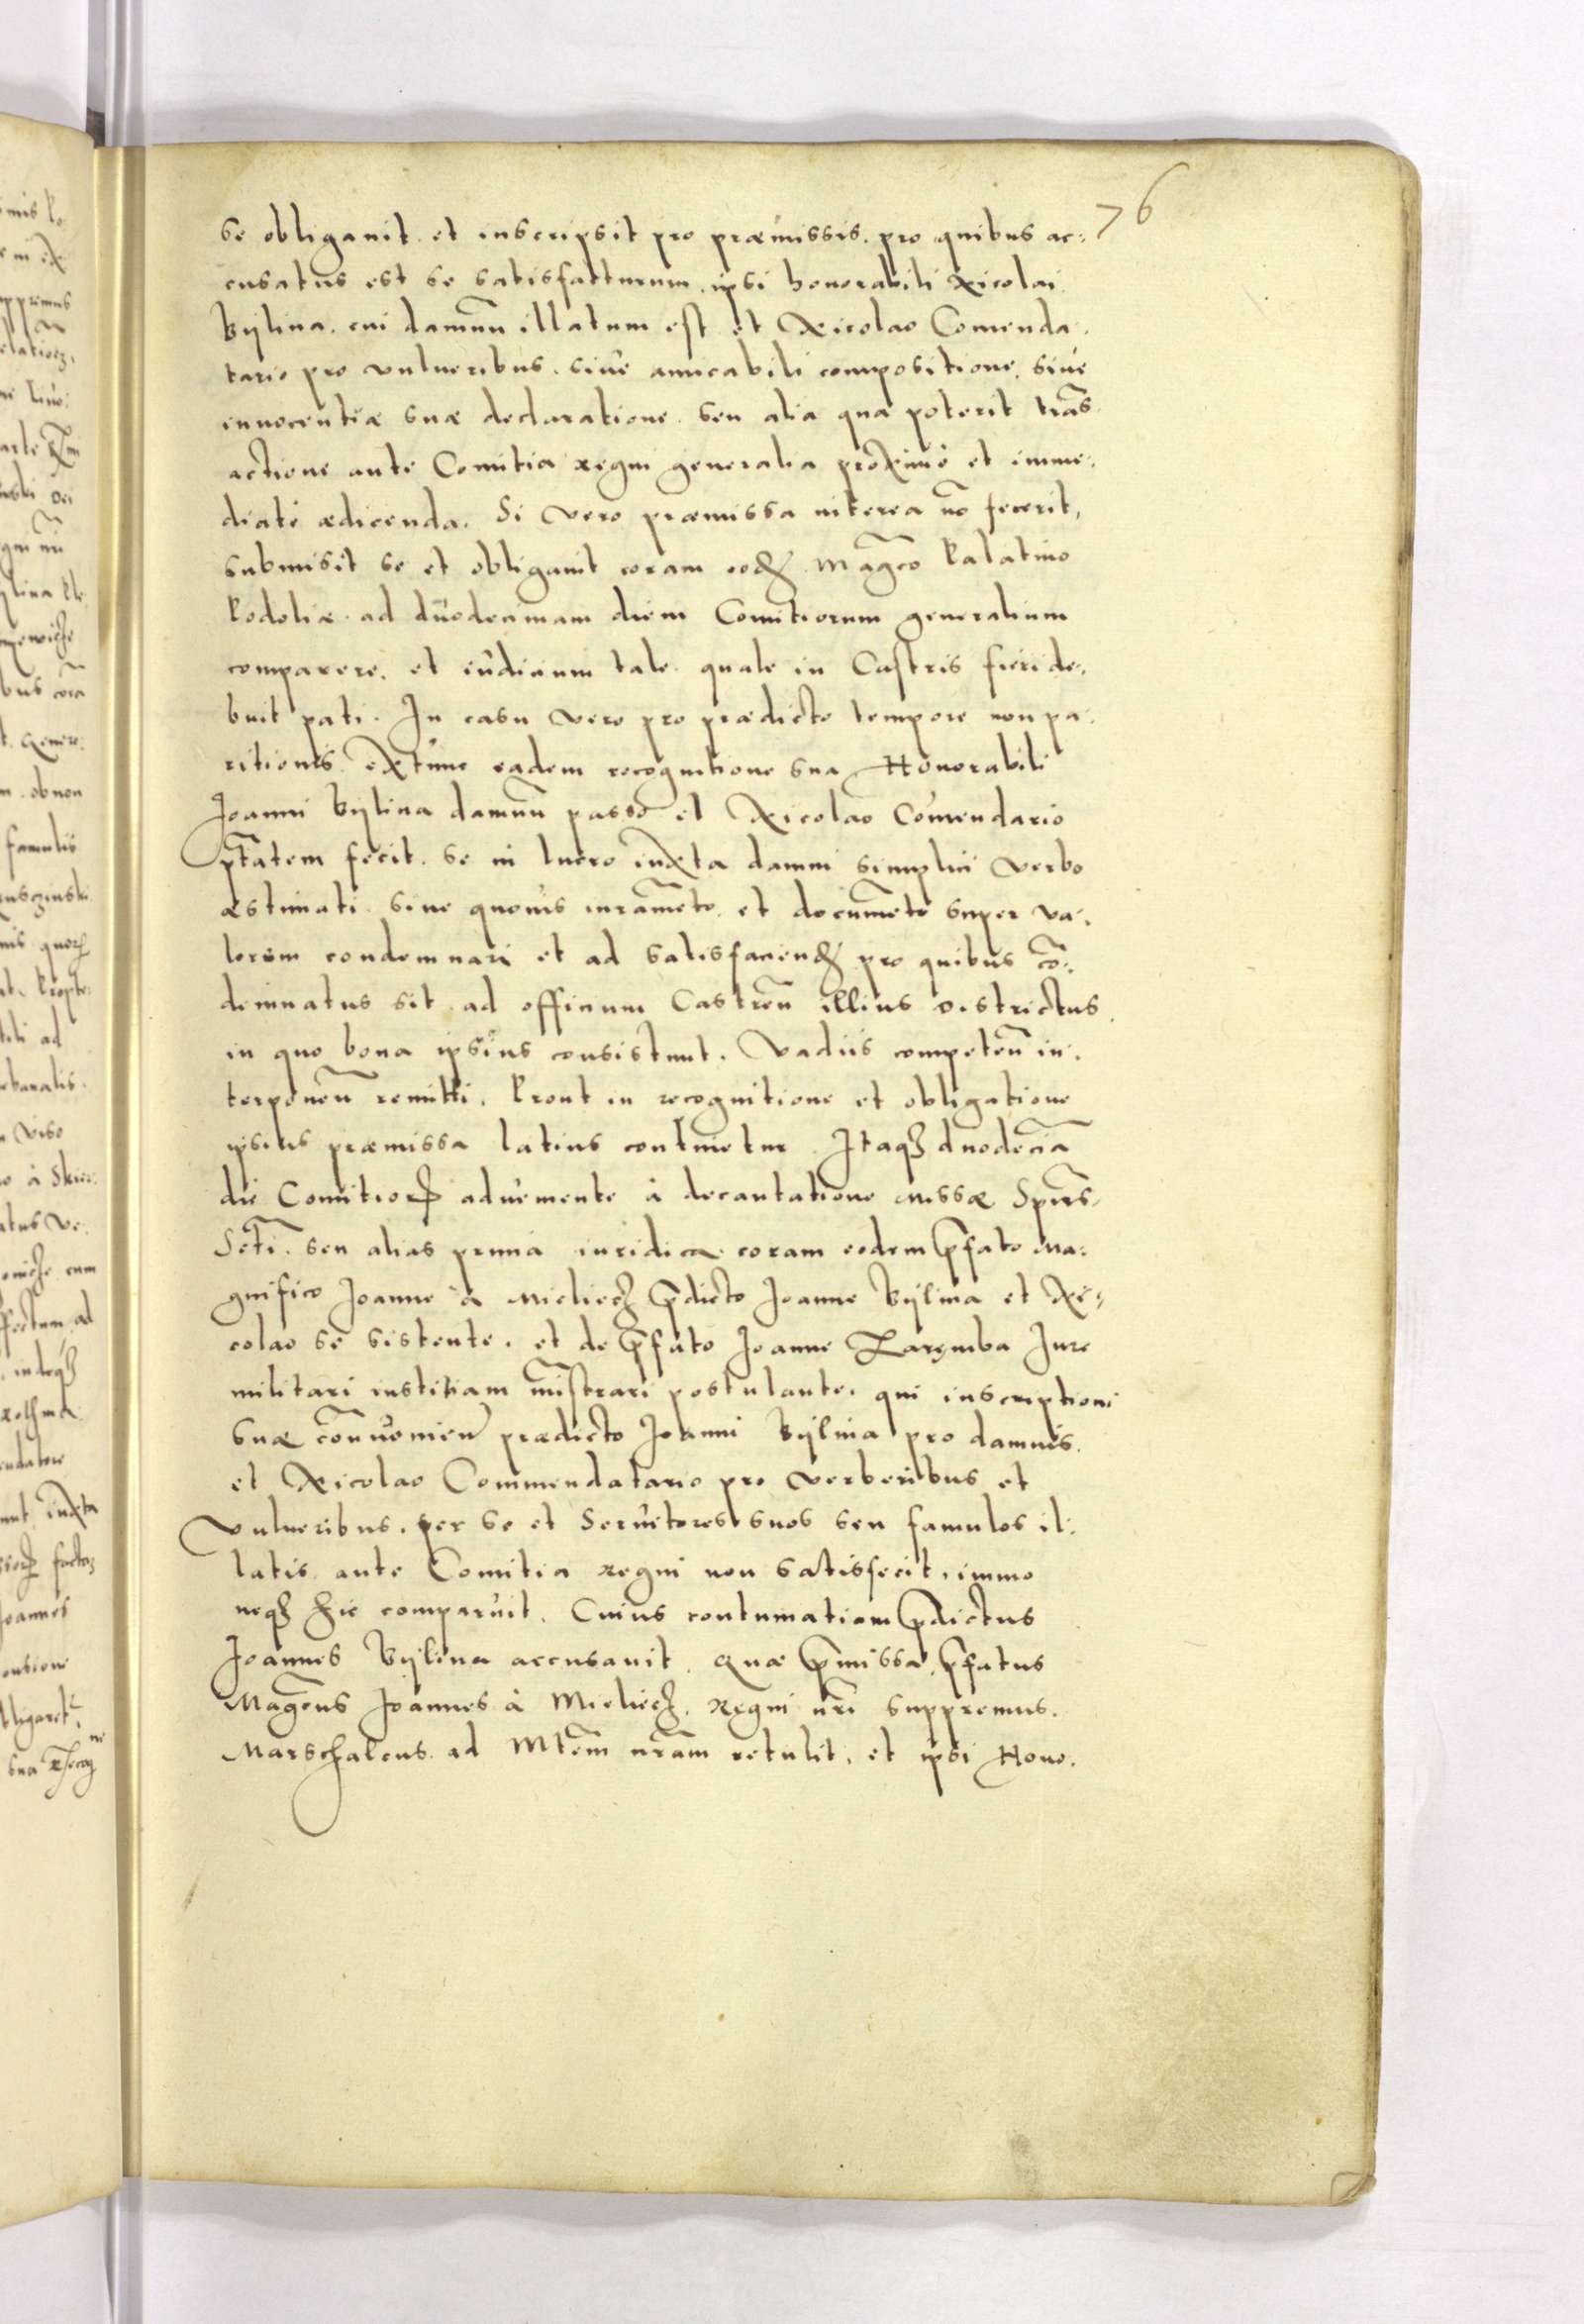 76
se obligavit et inscripsit pro præmissis, pro quibus ac:
cusatus est se satisfatturum, ipsi honorabili Nicolai
Bÿlina, cui damnũ illatum est et Nicolao Comenda,
tario pro vulneribus, sive amicabili compositione, sive
innocentiæ suæ declaratione, seu alia qua poterit trãs,
actione ante Comitia regni generalia proxime et imme,
diate ædicenda. Si vero præmissa interea nõ fecerit,
submisit se et obligavit coram eodẽ Magco Palatino
Podoliæ, ad duodecimam diem Comitiorum generalium
comparere, et iudicium tale, quale in Castris fieri de,
buit pati. In casu vero pro prædicto tempore non pa,
ritionis, extunc eadem recognitione sua Honorabili
Joanni Bÿlina damnũ passo et Nicolao Comendario
ptãtem fecit, se in lucro iuxta damni simplici verbo
æstimati, sine quovis iuramẽto, et documẽto super va,
lorem condemnari et ad satisfaciendũ pro quibus cõ:
demnatus sit, ad officium Castreñ illius districtus,
in quo bona ipsius consistunt, Vadiis competeñ in,
terponeñ remitti, Prout in recognitione et obligatione
ipsius præmissa latius continetur. Itaqz duodecĩa
die Comitiorꝝ adveniente à decantatione missæ Spirũs
Scti. seu alias prima iuridica, coram eodem p̃fato Ma:
gnifico Joanne à Mieliecz p̃dicto Joanne Bÿlina et Ni:
colao se sistente, et de p̃fato Joanne Zaremba Jure
militari iustitiam mĩstrari postulante, qui inscriptioni
suæ cõnvenieñ prædicto Joanni Bÿlina pro damnis,
et Nicolao Commendatario pro verberibus et
vulneribus, per se et Servitores suos seu famulos il:
latis ante Comitia regni non satisfecit, immo
neqz hic comparuit. Cuius contumatiam p̃dictus
Joannes Bÿlina accusavit, Quæ p̃missa, p̃fatus
Magcus Joannes à Mieliecz, Regni nri suppremus,
Marschalcus, ad Mtem nram retulit, et ipsi Hono,